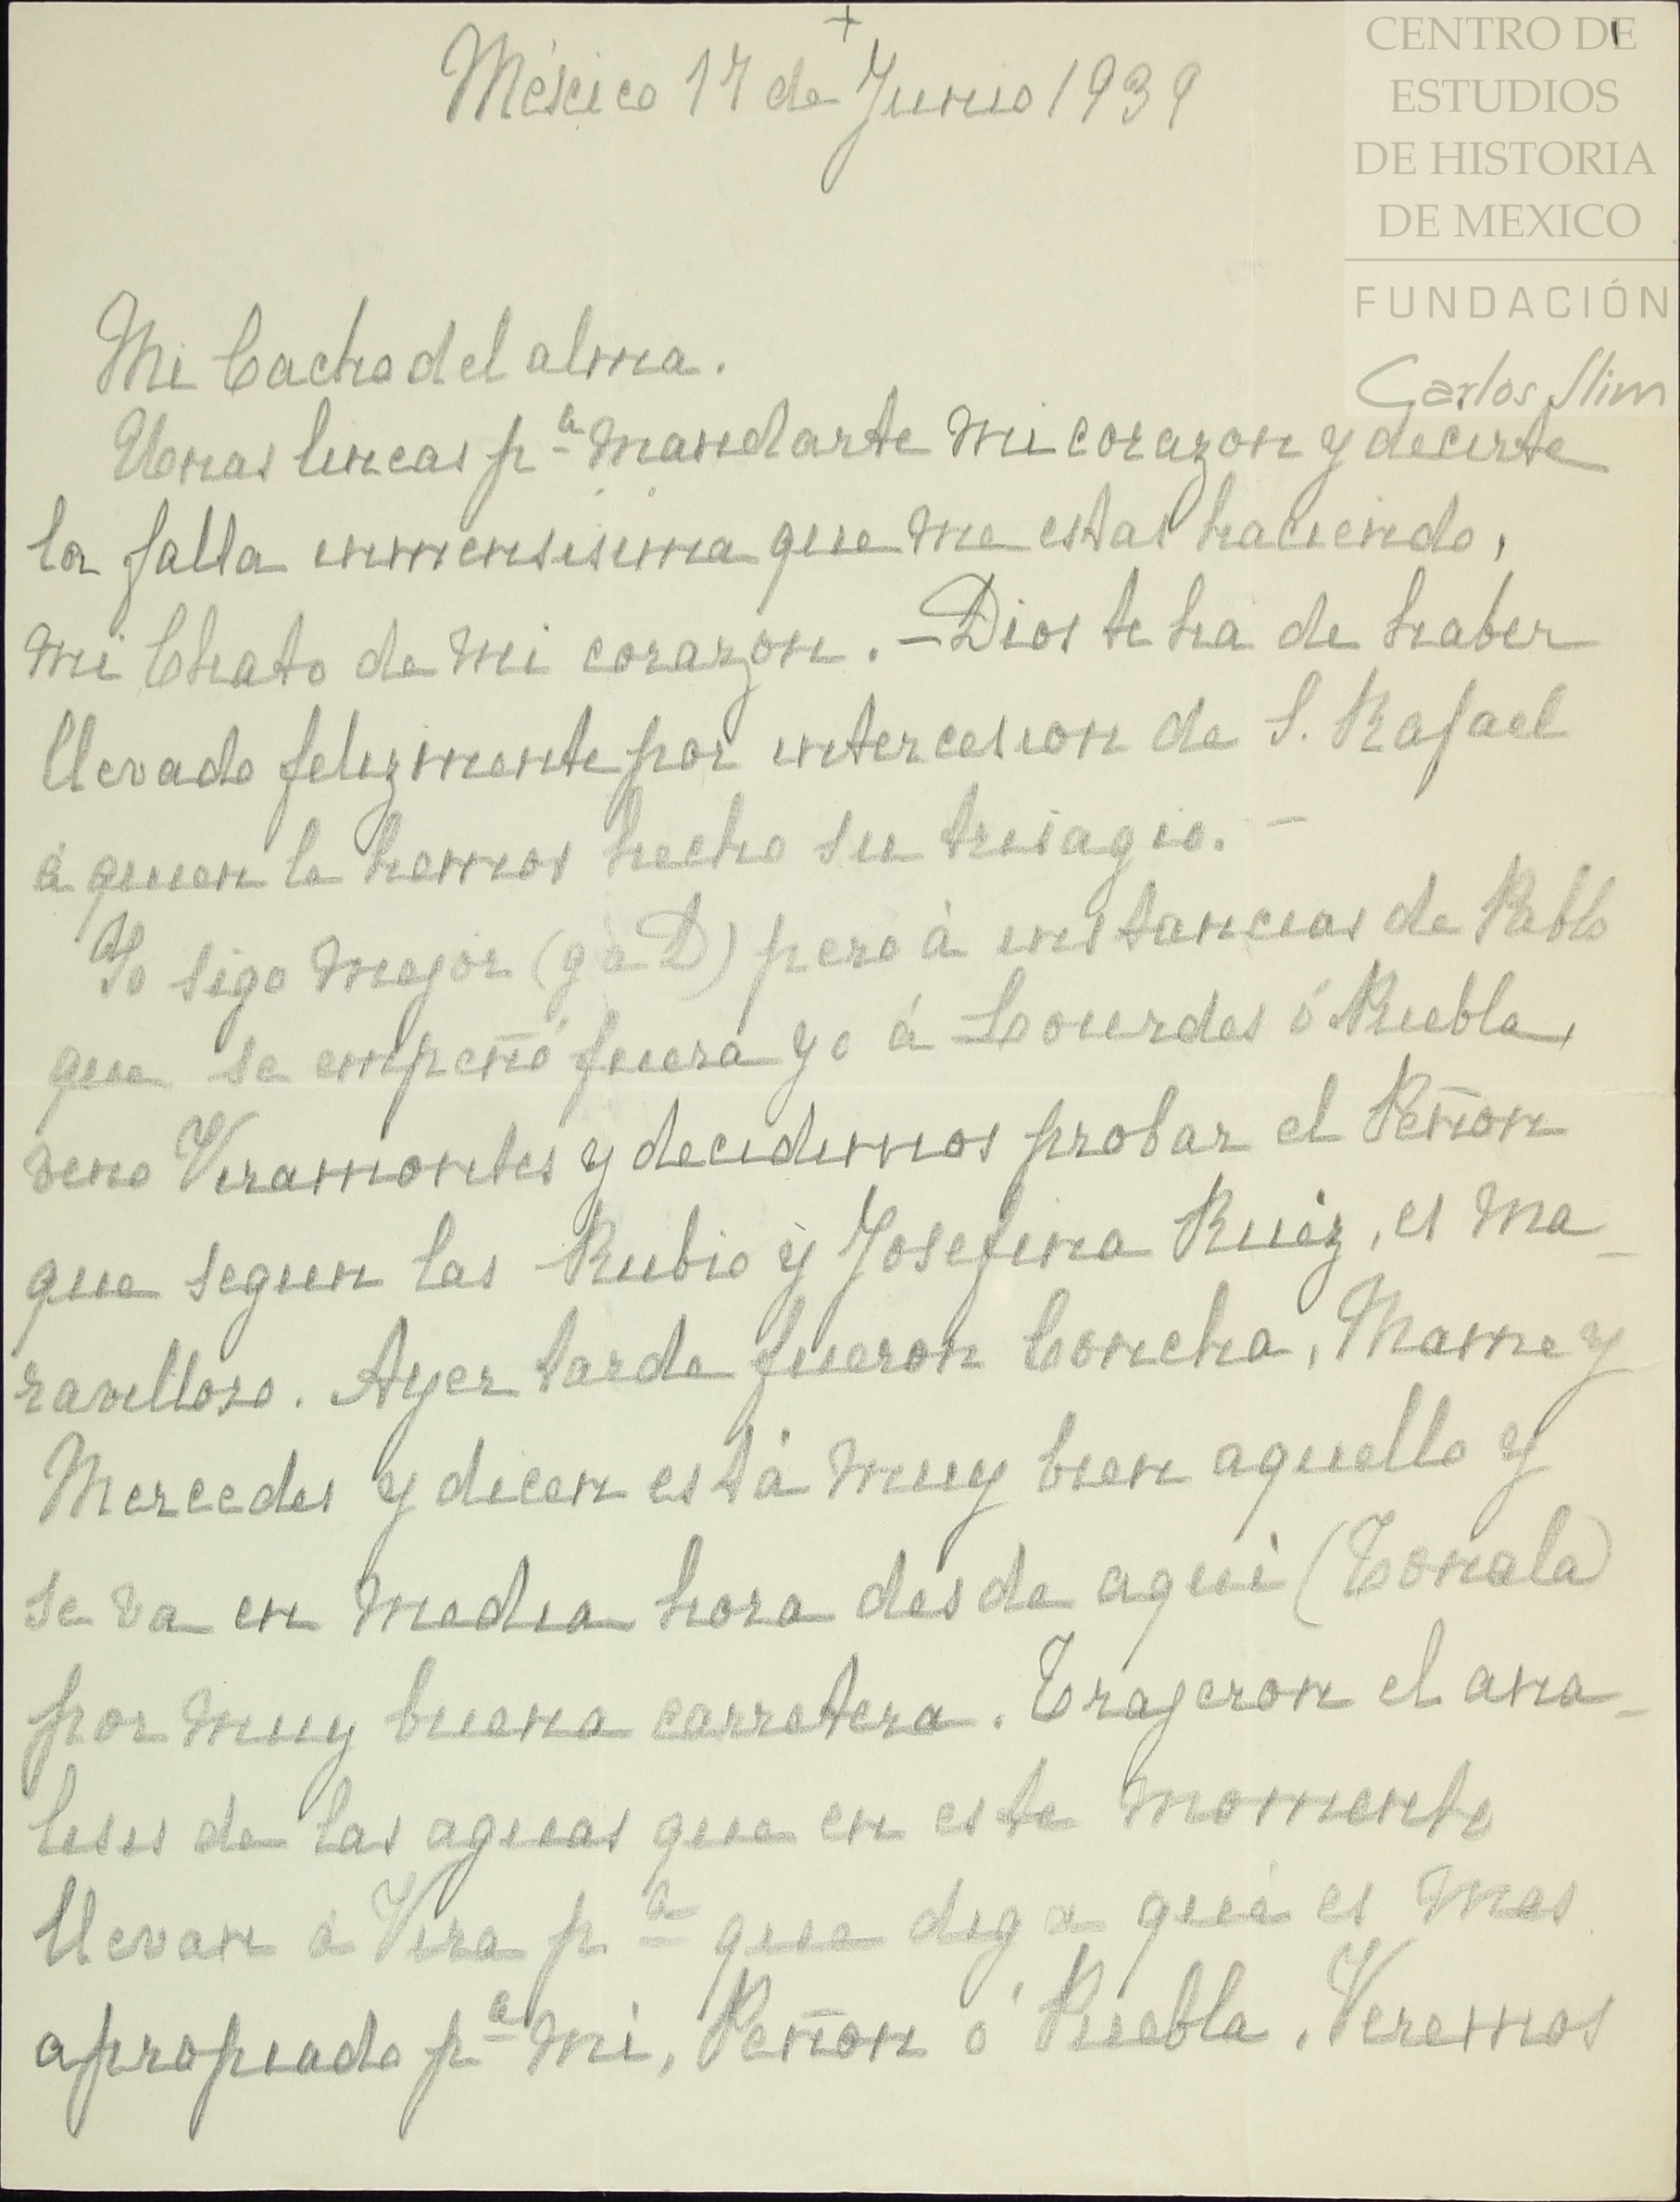 +
1
México 17 de Junio 1939
CENTRO DE
ESTUDIOS
DE HISTORIA
DE MEXICO
FUNDACIÓN
Carlos Slim
Mi Cacho del alma.
Unas lineas pª mandarte mi corazon y decirte
la falta inmensisima que me estas haciendo,
mi Chato de mi corazón. – Dios te ha de haber
llevado felizmente por intercesion de S. Rafael
á quien le hemos hecho su trisagio. –
Yo sigo mejor (g a D) pero á instancias de Pablo
que se empeñó fuera yo á Lourdes ó Puebla,
vino Viramontes y decidimos probar el Peñon
que segun las Rubio y Josefina Ruiz, es ma-
ravilloso. Ayer tarde fueron Concha, Mame y
Mercedes y dicen está muy bien aquello y
se va en media hora desde aqui (Tonala)
por muy buena carretera. Trajeron el ana-
lisis de las aguas que en este momento
llevan á Vira pª que diga qué es mas
apropiado pª mi, Peñon ó Puebla. Veremos